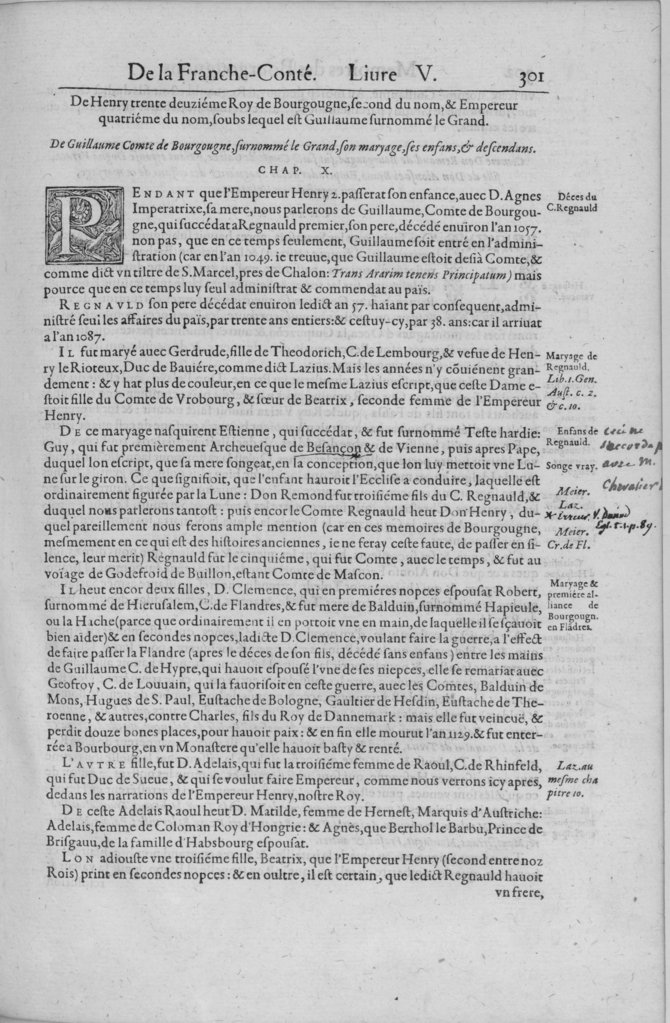 De la Franche-Conté. Liure V. 301
De Henry trente deuziéme Roy de Bourgougne, second du nom, & Empereur
quatriéme du nom, soubs lequel est Guillaume surnommé le Grand.
De Guillaume Comte de Bourgougne, surnommé le Grand, son maryage, ses enfans, & descendans.
CHAP. X.
PENDANT que l'Empereur Henry 2. passerat son enfance, auec D. Agnes
Imperatrixe, sa mere, nous parlerons de Guillaume, Comte de Bourgou-
gne, qui succédat a Regnauld premier, son pere, décédé enuiron l'an 1057.
non pas, que en ce temps seulement, Guillaume soit entré en l'admini-
stration (car en l'an 1049. ie treuue, que Guillaume estoit desià Comte, &
comme dict vn tiltre de S. Marcel, pres de Chalon: Trans Ararim tenens Principatum) mais
pource que en ce temps luy seul administrat & commendat au païs.
REGNAVLD son pere décédat enuiron ledict an 57. haiant par consequent, admi-
nistré seul les affaires du païs, par trente ans entiers: & cestuy-cy, par 38. ans: car il arriuat
a l'an 1087.
IL fut maryé auec Gerdrude, fille de Theodorich, C. de Lembourg, & vefue de Hen-
ry le Rioteux, Duc de Bauiére, comme dict Lazius. Mais les années n'y cõuiénent gran-
dement: & y hat plus de couleur, en ce que le mesme Lazius escript, que ceste Dame e-
stoit fille du Comte de Vrobourg, & sœur de Beatrix, seconde femme de l'Empereur
Henry.
DE ce maryage nasquirent Estienne, qui succédat, & fut surnommé Teste hardie:
Guy, qui fut premiérement Archeuesque de Besançon & de Vienne, puis apres Pape,
duquel lon escript, que sa mere songeat, en la conception, que lon luy mettoit vne Lu-
ne sur le giron. Ce que signifioit, que l'enfant hauroit l'Ecclise a conduire, laquelle est
ordinairement figurée par la Lune: Don Remond fut troisiéme fils du C. Regnauld, &
duquel nous parlerons tantost: puis encor le Comte Regnauld heut Don Henry, du-
quel pareillement nous ferons ample mention (car en ces memoires de Bourgougne,
mesmement en ce qui est des histoires anciennes, ie ne feray ceste faute, de passer en si-
lence, leur merit) Regnauld fut le cinquiéme, qui fut Comte, auec le temps, & fut au
voïage de Godefroid de Buillon, estant Comte de Mascon.
IL heut encor deux filles, D. Clemence, qui en premiéres nopces espousat Robert,
surnommé de Hierusalem, C. de Flandres, & fut mere de Balduin, surnommé Hapieule,
ou la Hache (parce que ordinairement il en portoit vne en main, de laquelle il se sçauoit
bien aider) & en secondes nopces, ladicte D. Clemence, voulant faire la guerre, a l'effect
de faire passer la Flandre (apres le déces de son fils, décédé sans enfans) entre les mains
de Guillaume C. de Hypre, qui hauoit espousé l'vne de ses niepces, elle se remariat auec
Geofroy, C. de Louuain, qui la fauorisoit en ceste guerre, auec les Comtes, Balduin de
Mons, Hugues de S. Paul, Eustache de Bologne, Gaultier de Hesdin, Eustache de The-
roenne, & autres, contre Charles, fils du Roy de Dannemark: mais elle fut veincuë, &
perdit douze bones places, pour hauoir paix: & en fin elle mourut l'an 1129. & fut enter-
rée a Bourbourg, en vn Monastere qu'elle hauoit basty & renté.
L'AVTRE fille, fut D. Adelais, qui fut la troisiéme femme de Raoul, C. de Rhinfeld,
qui fut Duc de Sueue, & qui se voulut faire Empereur, comme nous verrons icy apres,
dedans les narrations de l'Empereur Henry, nostre Roy.
DE ceste Adelais Raoul heut D. Matilde, femme de Hernest, Marquis d'Austriche:
Adelais, femme de Coloman Roy d'Hongrie: & Agnès, que Berthol le Barbu, Prince de
Brisgauu, de la famille d'Habsbourg espousat.
LON adiouste vne troisiéme fille, Beatrix, que l'Empereur Henry (second entre noz
Rois) print en secondes nopces: & en oultre, il est certain, que ledict Regnauld hauoit
vn frere,
Déces du
C. Regnauld
Maryage de
Regnauld.
Lib. 1. Gen.
Aust. c. 2.
& c. 10.
Enfans de
Regnauld.
ceci ne
s'accorde p
Songe vray.
avec M.
Chevalier
Meier.
Laz.
Meier.
Cr. de Fl.
Maryage &
premiére al-
liance de
Bourgougn.
en Flãdres.
Laz. au
mesme cha
pitre 10.